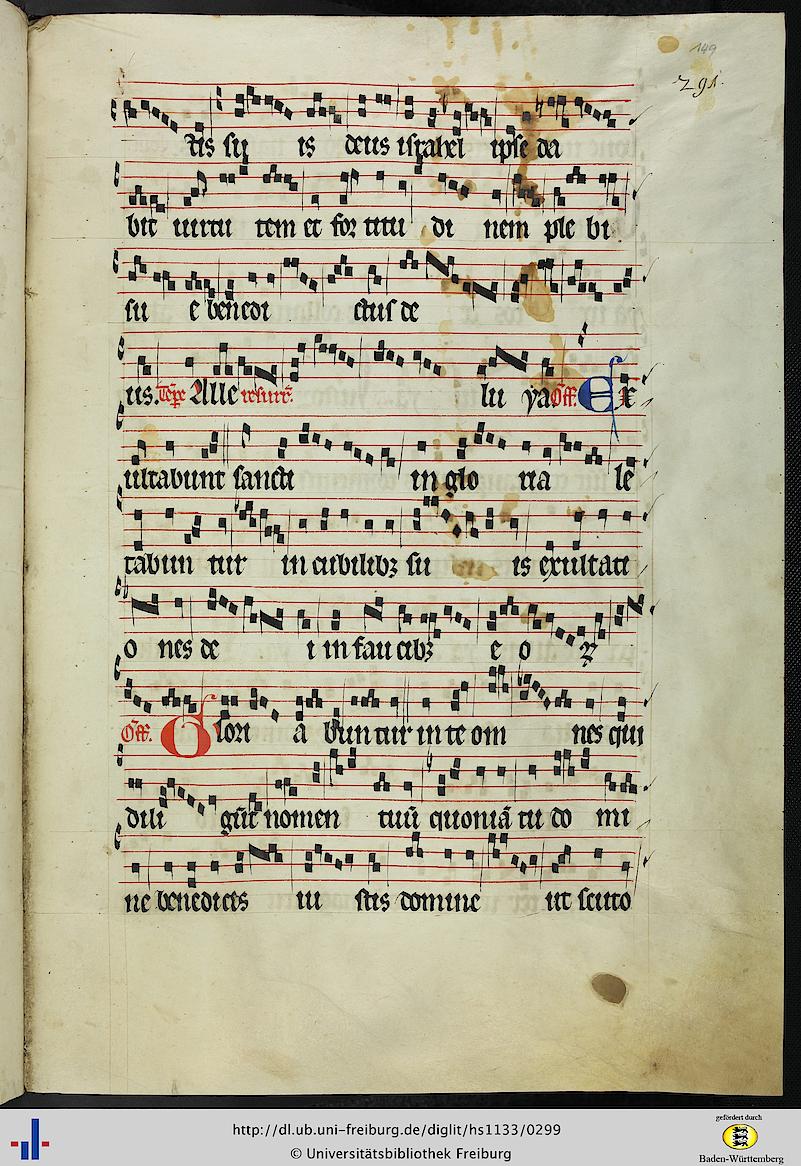 149
291.
ctis su is deus israhel ipse da
bit uirtu tem et for titu di nem ple bi
su e benedi ctus de
us. Alle lu ya Off. Ex
ultabunt sancti in glo ria le
tabun tur in cubilibꝫ su is exultati
o nes de i in fau cibꝫ e o ꝝ
Off. Glori a bun tur in te om nes qui
dili gūt nomen tuū quoniā tu do mi
ne benedices iu stis domine ut scuto
http://dl.ub.uni-freiburg.de/diglit/hs1133/0299
© Universitätsbibliothek Freiburg
gefördert durch
Baden-Württemberg